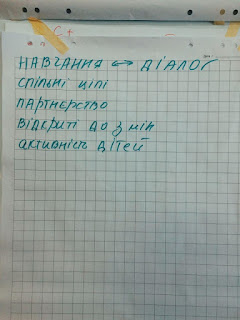 НАВЧАННЯ ↔ ДІАЛОГ
СПІЛЬНІ ЦІЛІ
ПАРТНЕРСТВО
ВІДКРИТІ ДО ЗМІН
АКТИВНІСТЬ ДІТЕЙ